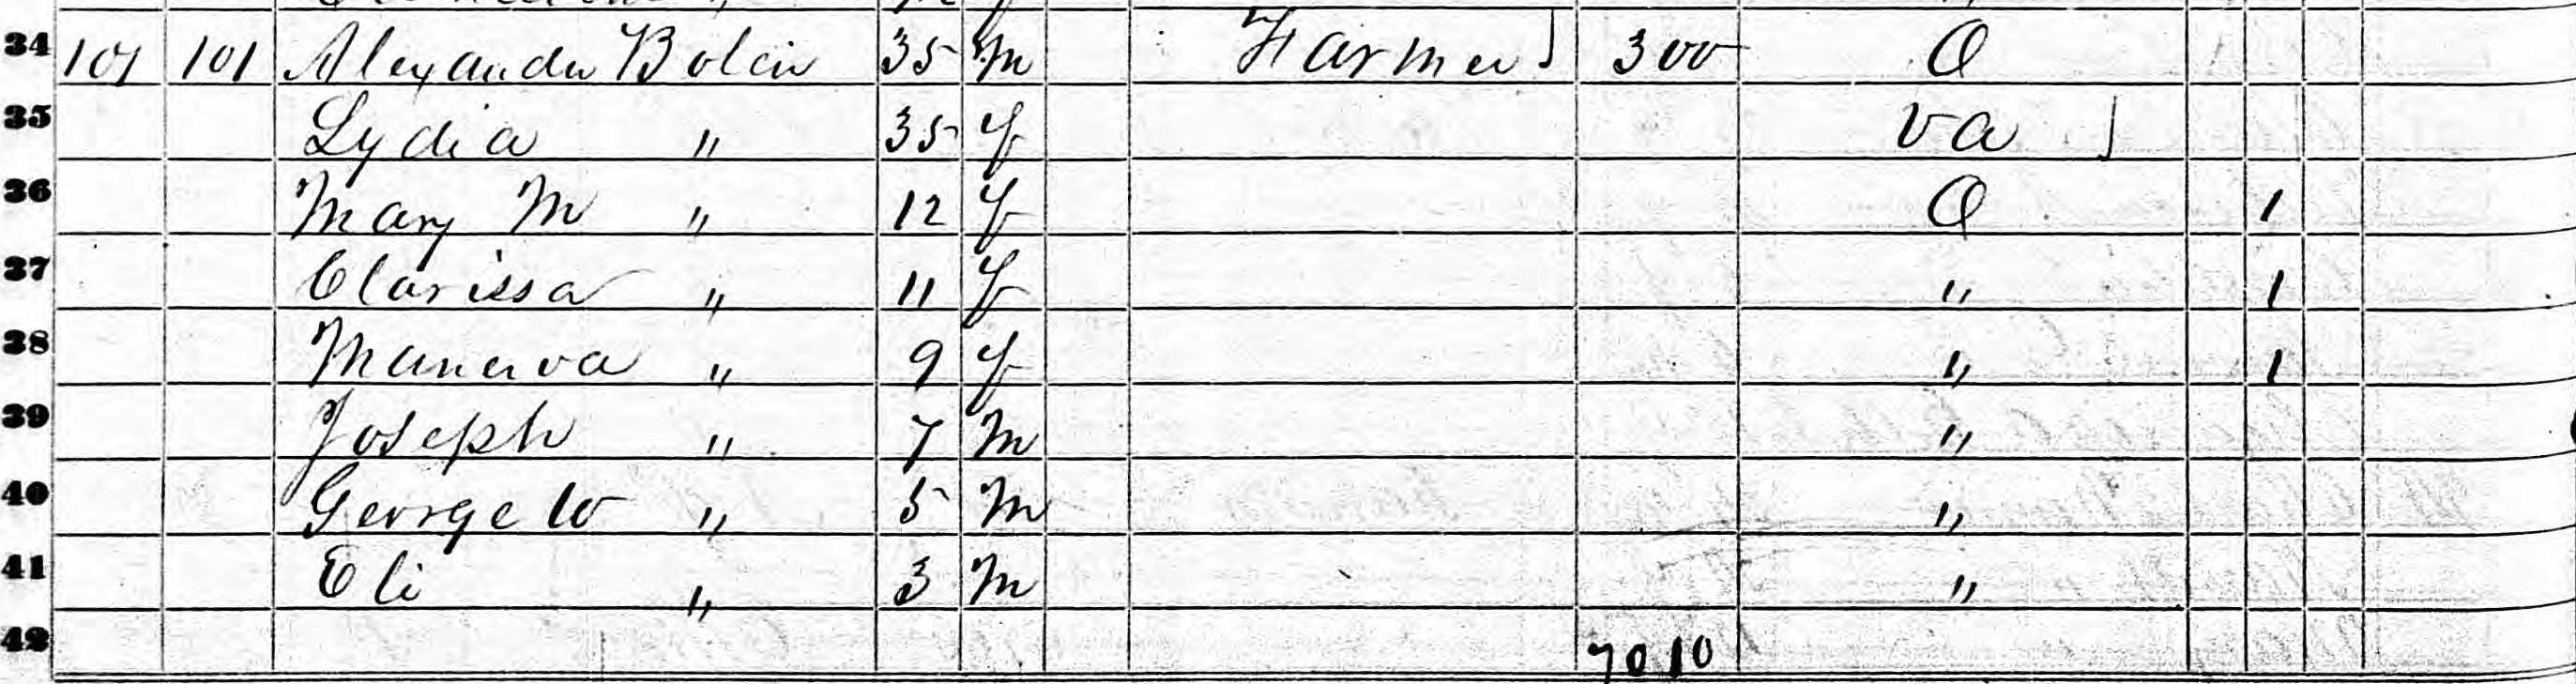 34 101 101 Alexander Bolin 35 m Farmer 300 O
35 Lydia " 35 f va
36 Mary M " 12 f O 1
37 Clarissa " 11 f " 1
38 Manerva " 9 f " 1
39 Joseph " 7 m "
40 George W " 5 m "
41 Eli " 3 m "
42 7010